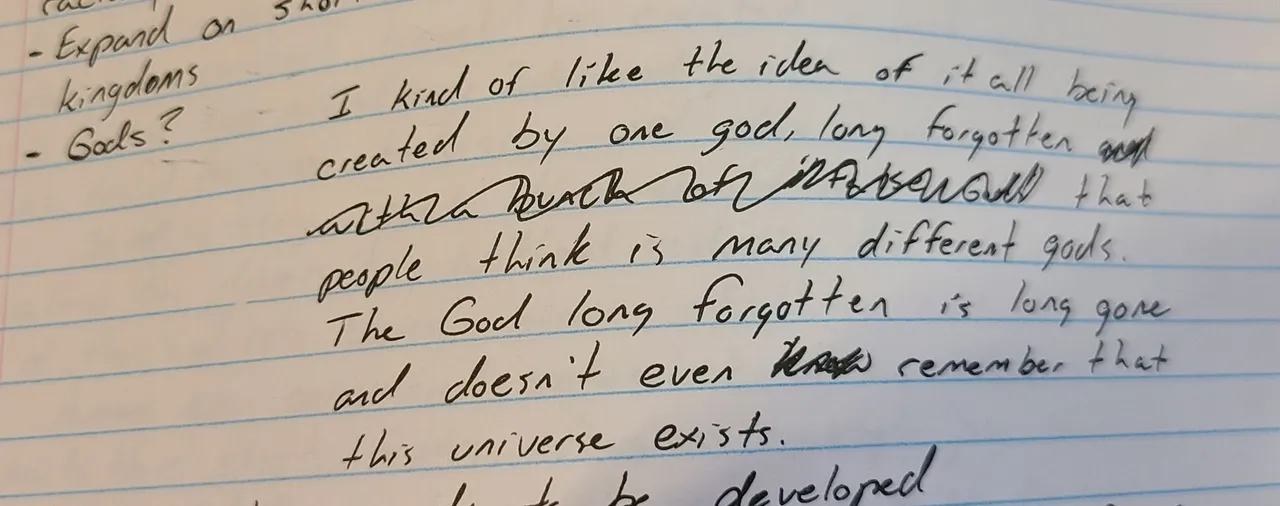 - Expand on
kingdoms
- Gods?
I kind of like the idea of it all being
created by one god, long forgotten
that
people think is many different gods.
The God long forgotten is long gone
and doesn't even remember that
this universe exists.
be developed